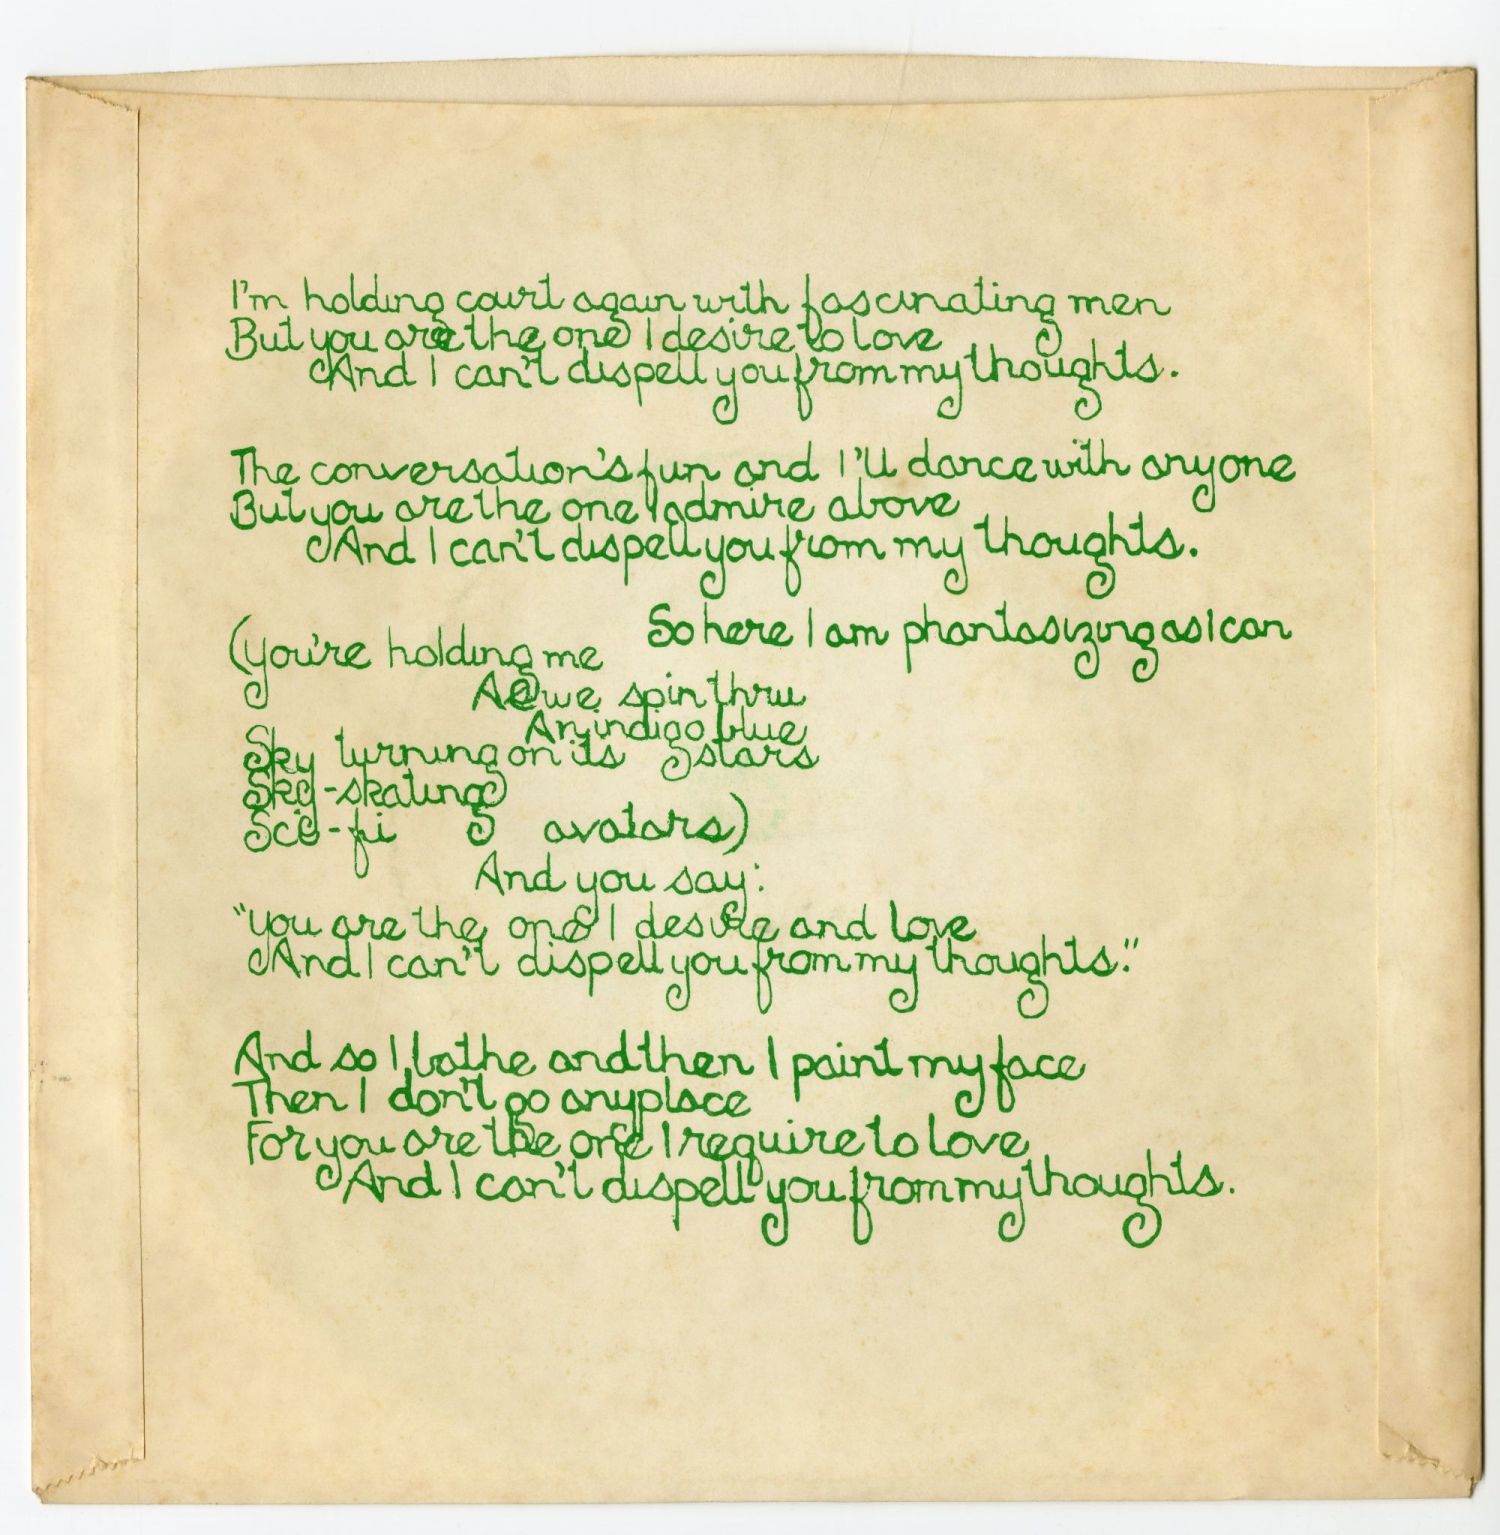 I'm holding court again with fascinating men
But you are the one I desire to love
And I can't dispell you from my thoughts.
The conversation's fun and I'll dance with anyone
But you are the one I admire above
And I can't dispell you from my thoughts.
So here I am phantasizing as I can
(you're holding me
As we spin thru
An indigo blue
Sky turning on its stars
Sky-skating
Sci-fi avatars)
And you say:
"you are the one I desire and love
And I can't dispell you from my thoughts."
And so I bathe and then I paint my face
Then I don't go anyplace
For you are the one I require to love
And I can't dispell you from my thoughts.